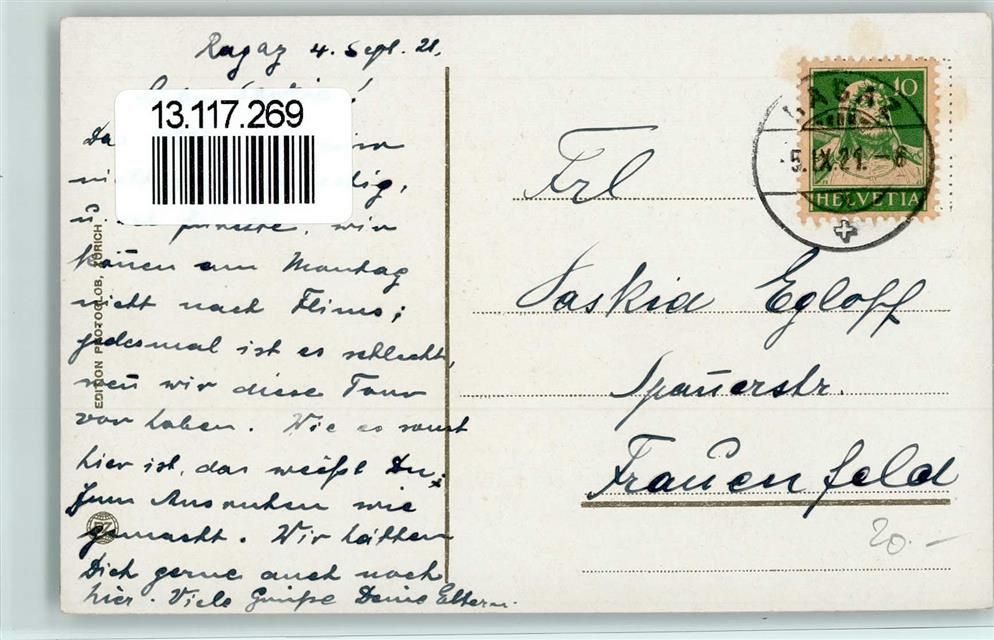 Ragaz 4. Sept. 21.
13.117.269
Da
u.
wir
können am Montag
nicht nach Flims;
jedesmal ist es schlecht,
wen̄ wir diese Tour
vor haben. Wie es sonst
hier ist, das weißt Du;
zum Ausruhen wie
gemacht. Wir hätten
Dich gerne auch noch
hier. Viele Grüße Deine Eltern.
EDITION PHOTOGLOB, ZÜRICH
PZ
10
HELVETIA
RAGAZ
5.IX.21.-6
Frl
Saskia Egloff
Spanerstr.
Frauenfeld
20.-